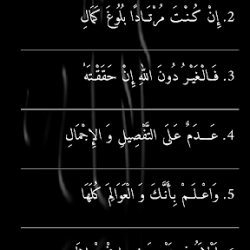 2. إِنْ كُنْتَ مُرْتَادًا بُلُوغَ كَمَالِ
3. فَالْغَيْرُ دُونَ اللهِ إِنْ حَقَقْتَهُ
4. عَدَمٌ عَلَى التَّفْصِيلِ وَ الإِجْمَالِ
5. وَاعْلَمْ بِأَنَّكَ وَ الْعَوَالِمَ كُلَهَا